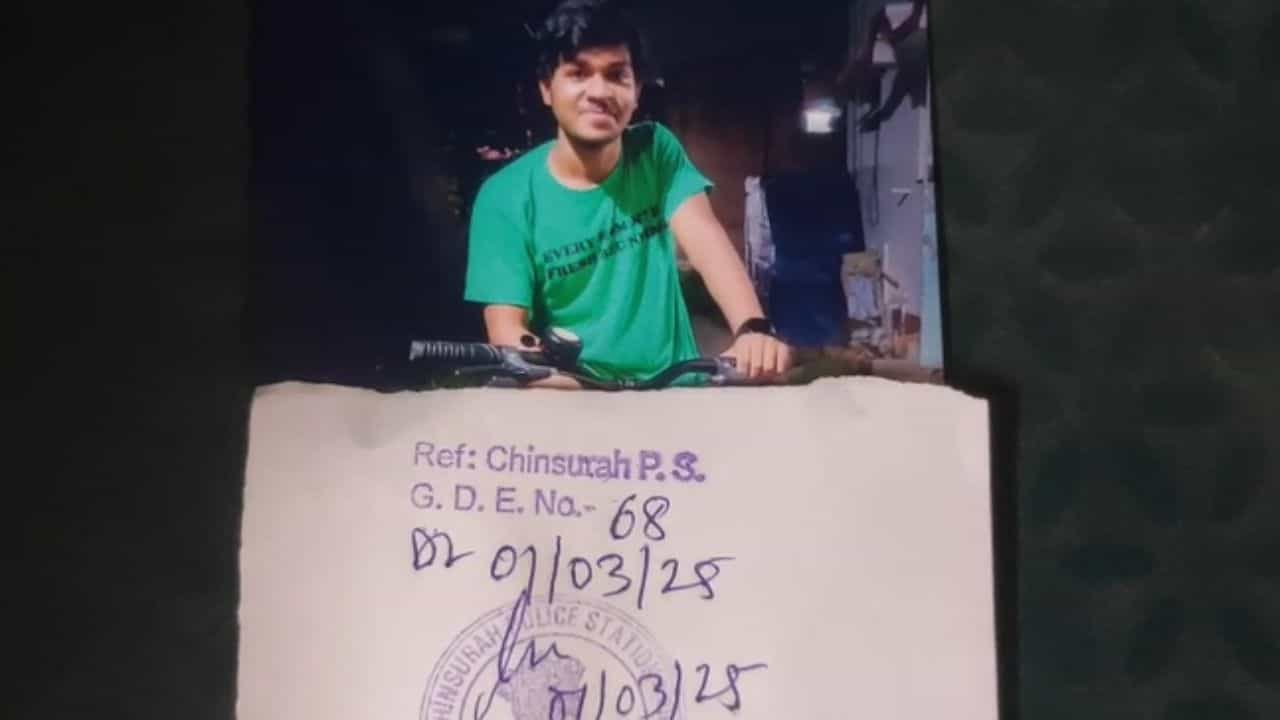 EVERY
FRESH
Ref: Chinsurah P. S.
G. D. E. No.- 68
Dt 01/03/25
CHINSURAH POLICE STATION
01/03/25